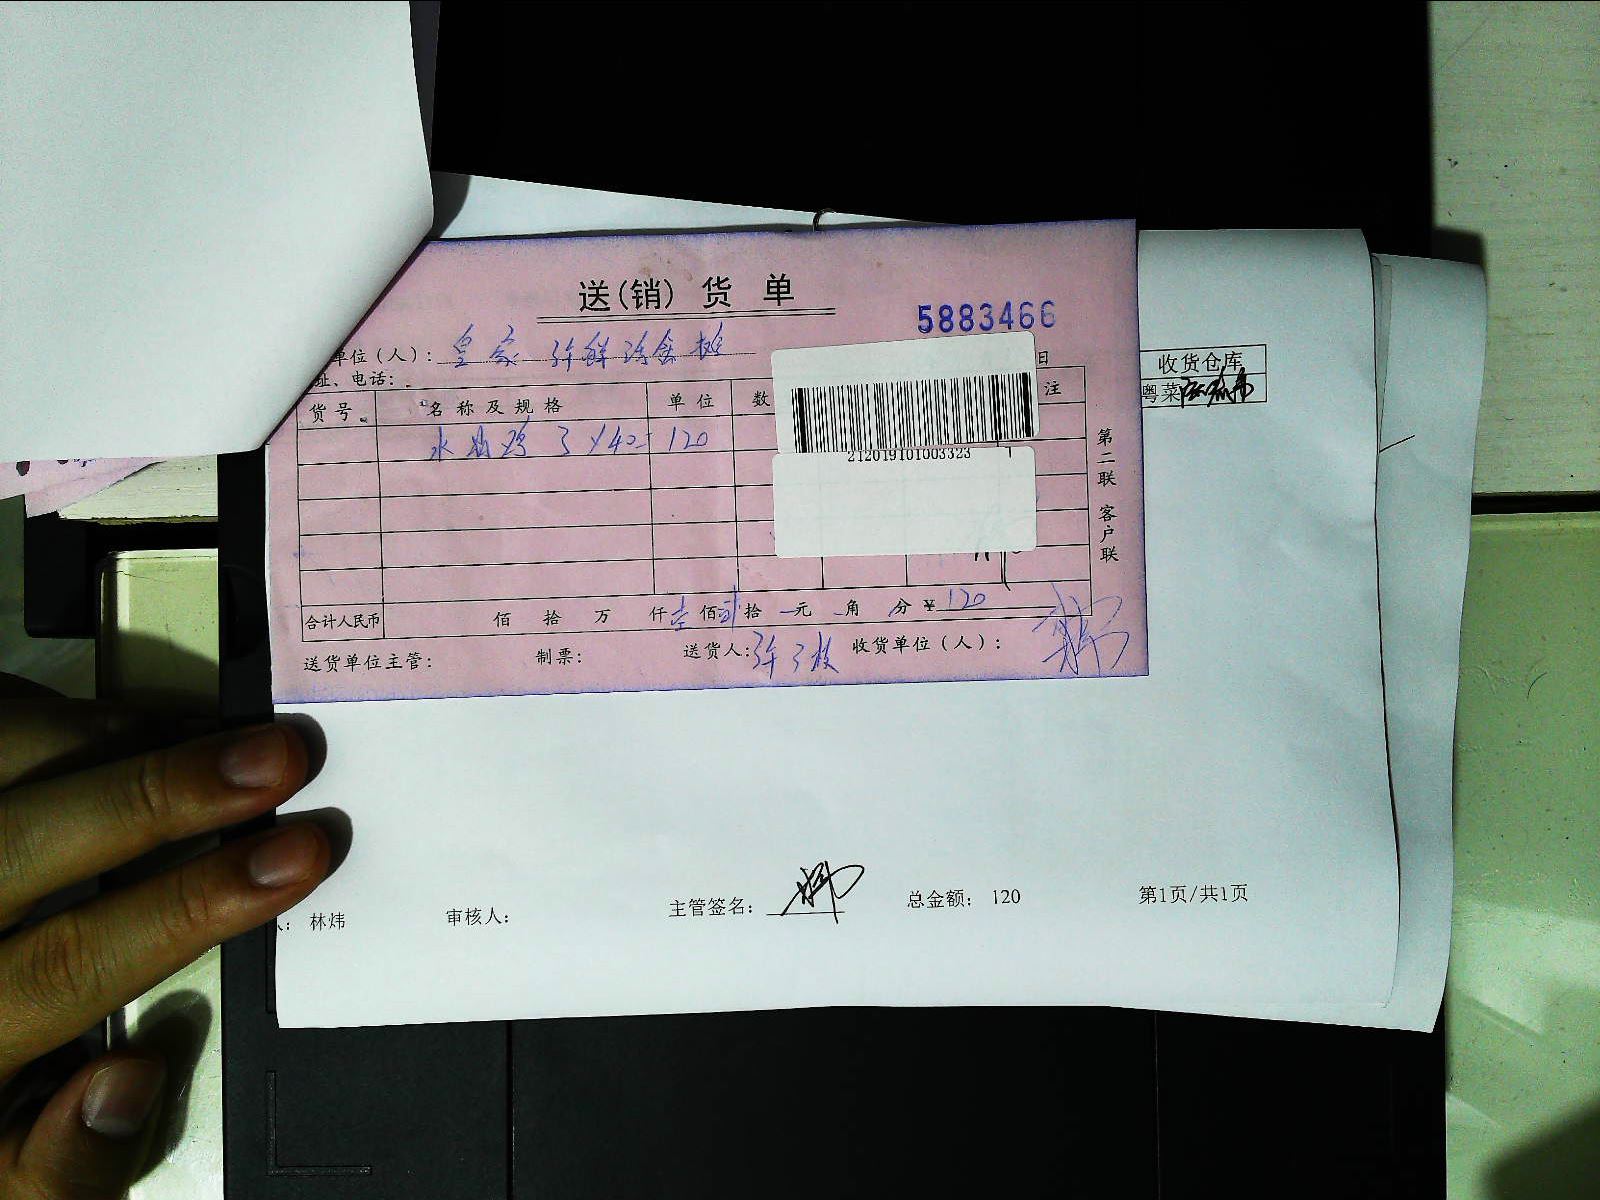 送(销)货单
5883466
单位(人): 皇家
日
址、电话:
收货仓库
粤菜
货号 名称及规格 单位 数 注
水 鸡 3×40= 120
212019101003323
第二联 客户联
合计人民币 佰 拾 万 仟 壹 佰 贰 拾 元 角 分 ¥ 120
送货单位主管: 制票: 送货人: 收货单位(人):
林炜 审核人: 主管签名: 总金额: 120 第1页/共1页